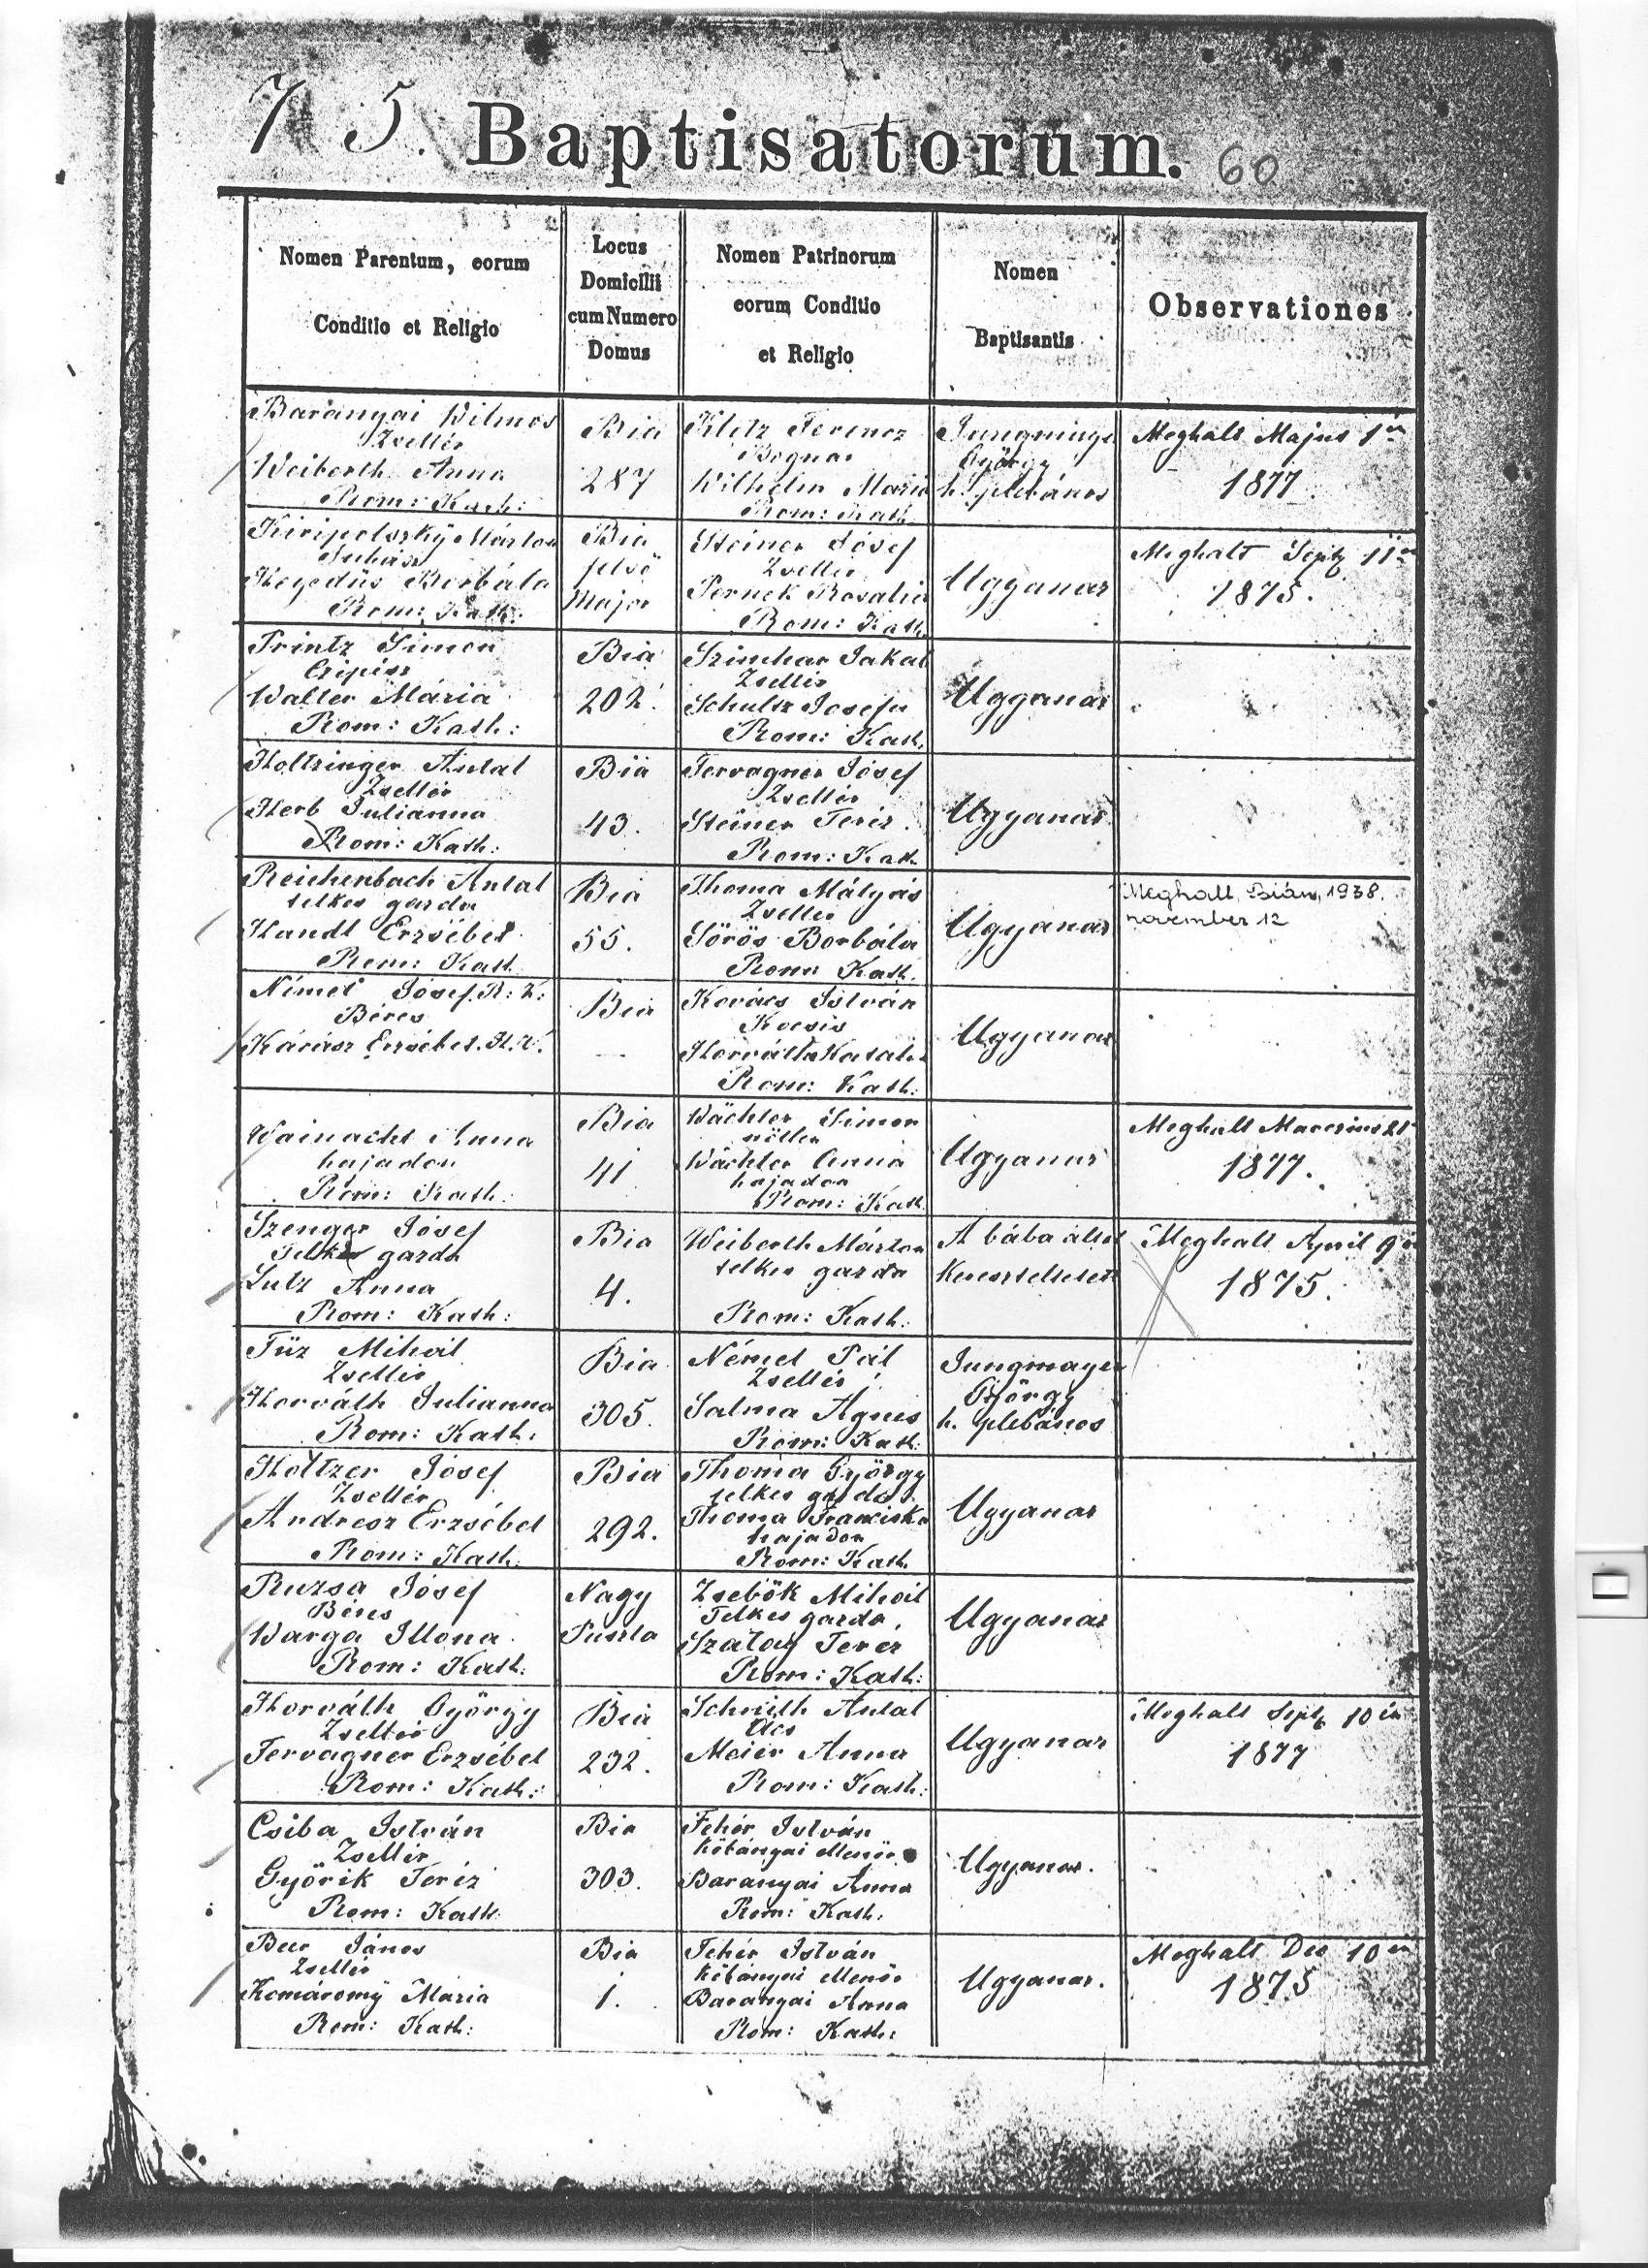 75. Baptisatorum. 60
Nomen Parentum, eorum
Conditio et Religio
Locus
Domicilii
cum Numero
Domus
Nomen Patrinorum
eorum Conditio
et Religio
Nomen
Baptisantis
Observationes
Baranyai Vilmos
Zsellér
Weiberth Anna
Rom: Kath:
Bia
287
Kletz Ferencz
Bognar
Wilhelm Maria
Rom: Kath
György
h. plebános
Meghalt Majus 1én
1877.
Kiripolszkÿ Márton
Juhász
Hegedüs Borbála
Rom: Kath:
Bia
felsö
Major
Steiner Jósef
Zsellér
Pernek Rosalia
Rom: Kath
Ugyanaz
Meghalt Sept 11én
1875.
Printz Simon
Czipész
Walter Mária
Rom: Kath:
Bia
202.
Szinchar Jakab
Zsellér
Schultz Josefa
Rom: Kath.
Ugyanaz
Holtzinger Antal
Zsellér
Herb Julianna
Rom: Kath:
Bia
43.
Tervagner Jósef
Zsellér
Steiner Teréz.
Rom: Kath
Ugyanaz
Reichenbach Antal
telkes gazda
Handl Erzsébet
Rom: Kath
Bia
55.
Thoma Mátyás
Zsellér
Sörös Borbála
Rom: Kath.
Ugyanaz
Meghalt, Bián, 1938.
november 12
Német Jósef. R: K:
Béres
Kárász Erzsébet. H. V.
Bia
—
Kovács István
Kocsis
Horváth Katalin
Rom: Kath:
Ugyanaz
Wainacht Anna
hajadon
Rom: Kath:
Bia
41
Wächter Simon
nötlen
Wächter Anna
hajadon
Rom: Kath
Ugyanaz
Meghalt Marczius 21
1877.
Szenger Jósef
Telkes gazda
Lutz Anna
Rom: Kath:
Bia
4.
Weiberth Márton
telkes gazda
Rom: Kath:
A bába által
Keresztelteten
Meghalt April 9én
1875.
Füz Mihál
Zsellér
Horváth Julianna
Rom: Kath:
Bia
305.
Német Pál
Zsellér
Salma Agnes
Rom: Kath:
Jungmayer
György
h. plebános
Holtzer Jósef
Zsellér
Andresz Erzsébet
Rom: Kath:
Bia
292.
Thoma György
telkes gazda
Thoma Franciska
hajadon
Rom: Kath
Ugyanaz
Ruzsa Jósef
Béres
Varga Illona
Rom: Kath:
Nagy
Puszta
Zsebök Mihál
Telkes gazda
Szalay Teréz
Rom: Kath:
Ugyanaz
Horváth György
Zsellér
Tervagner Erzsébet
Rom: Kath:
Bia
232.
Schmith Antal
Ács
Meier Anna
Rom: Kath:
Ugyanaz
Meghalt Sept 10én
1877
Csiba István
Zsellér
Györik Teréz
Rom: Kath:
Bia
303.
Fehér István
köbányai ellenör
Baranyai Anna
Rom: Kath:
Ugyanaz.
Beer János
Zsellér
Komáromÿ Mária
Rom: Kath:
Bia
1.
Fehér István
köbányai ellenör
Baranyai Anna
Rom: Kath:
Ugyanaz.
Meghalt Dec 10én
1875